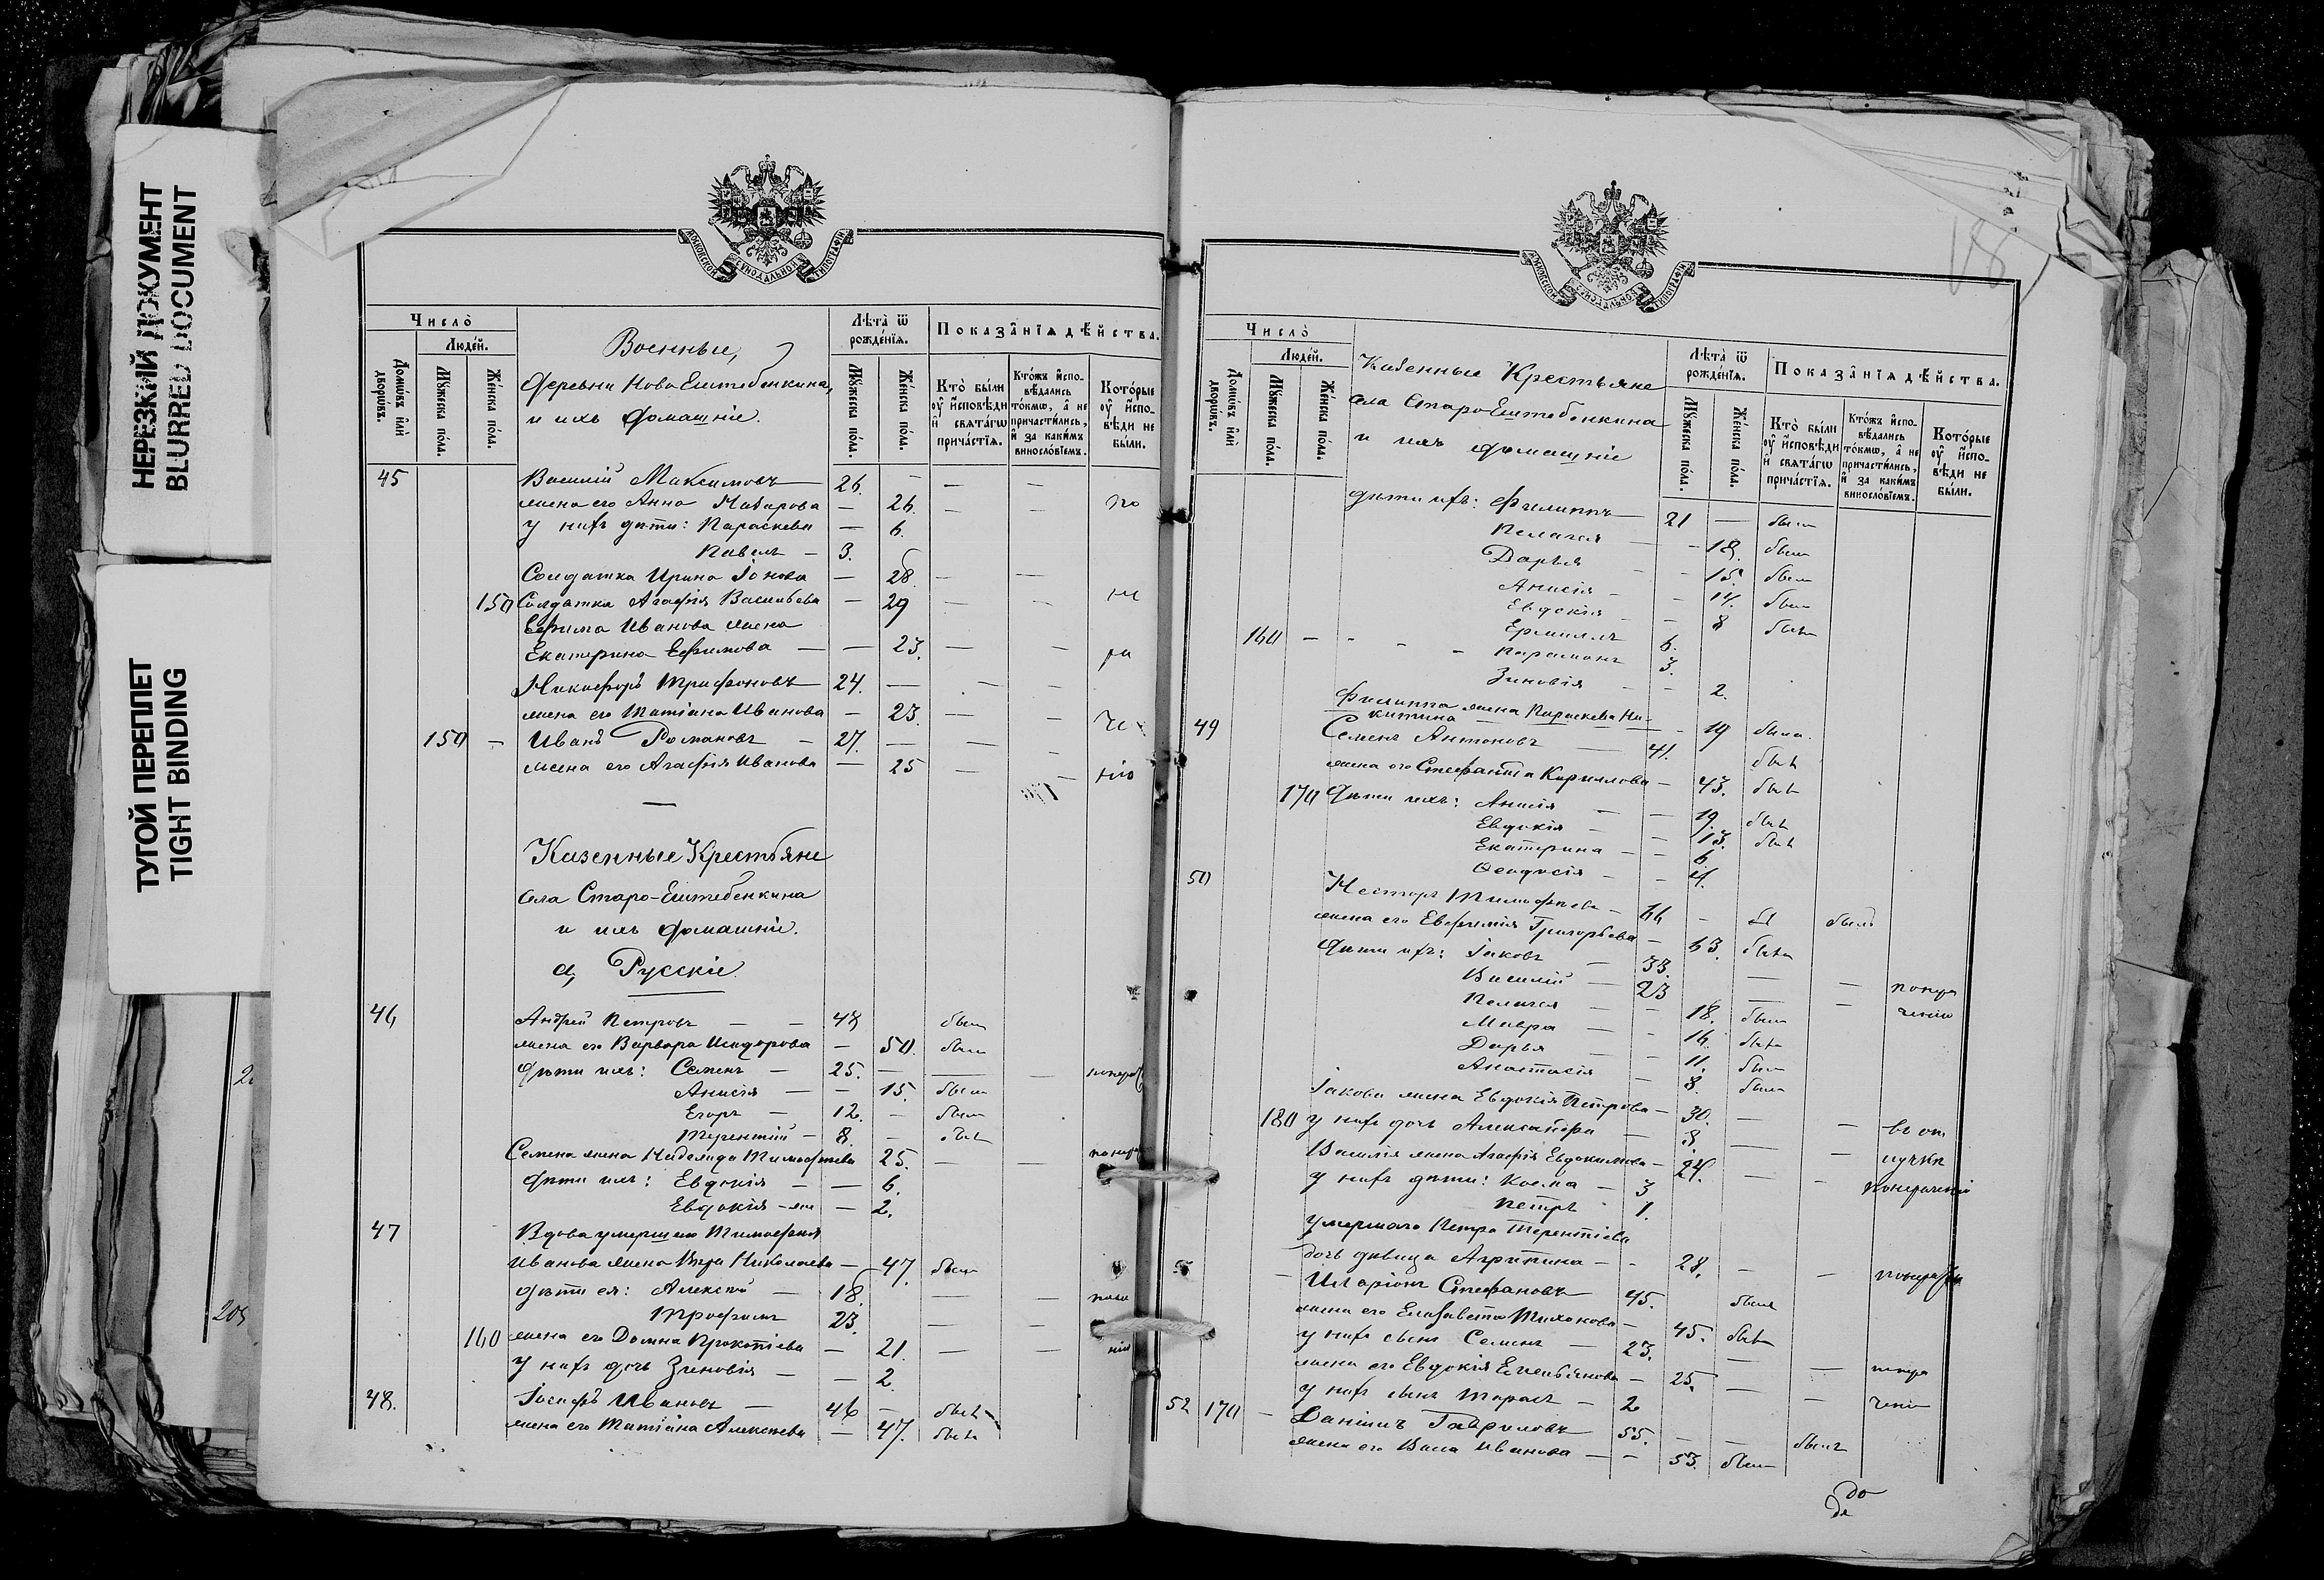 НЕРЕЗКИЙ ДОКУМЕНТ
BLURRED DOCUMENT
ТУГОЙ ПЕРЕПЛЕТ
TIGHT BINDING
205
МОСКОВСКОЙ СѴНОДАЛЬНОЙ ТИПОГРАФІИ
Число̀
Люде́й.
Домѡ́въ и҆лѝ дворѡ́въ.
Мꙋ́жеска по́ла.
Же́нска по́ла.
Военные,
деревни Ново Ештебенкина,
и ихъ домашніе.
Лѣта̀ ѿ рожде́нїѧ.
Мꙋ́жеска по́ла.
Же́нска по́ла.
Показа̑нїѧ дѣ́йства.
Кто̀ бы́ли оу҆ и҆сповѣ́ди и҆ свѧта́гѡ прича́стїѧ.
Кто́жъ и҆спо-вѣ́дались то́кмѡ, а҆ не причасти́лись, и҆ за каки́мъ винословїемъ.
Кото́рые оу҆ и҆спо-вѣ́ди не бы́ли.
45 Василій Максимовъ 26. — — —
жена его Анна Назарова — 26. — — по
у нихъ дѣти: Параскева — 6.
Павелъ — 3.
Солдатка Ирина Іонова — 28. — —
150 Солдатка Агафія Васильева — 29 — —
Ефима Иванова жена
Екатерина Ефимова — — 23. — —
Никифоръ Трифоновъ 24. — — —
жена его Татіана Иванова — 23. — —
150 — Иванъ Романовъ — 27. — — —
жена его Агафія Иванова — 25 — — нію
—
Казенные Крестьяне
села Старо-Ештебенкина
и ихъ домашніе.
а, Русскіе.
46 Андрей Петровъ — — 48 был
жена его Варвара Исидорова — 50. был
дѣти ихъ: Семенъ — 25. — — — понераб
Анисія — — 15. был
Егоръ — 12. — был
Терентій — 8. — был
Семена жена Надежда Тимофеева 25. — — понера
дѣти ихъ: Евдокія — — 6.
Евдокія — — 2.
47 Вдова умершаго Тимофея
Иванова жена Вѣра Николаева — 47. был
дѣти ея: Алексій — 18. — —
Трофимъ 23. — —
160 жена его Домна Прокопіева — 21. — — нію
у нихъ дочь Зиновія — — 2.
48. Іосифъ Ивановъ — 46 — был
жена его Татіана Алексѣева — 47. был
МОСКОВСКОЙ СѴНОДАЛЬНОЙ ТИПОГРАФІИ
Число̀
Люде́й.
Домѡ́въ и҆лѝ дворѡ́въ.
Мꙋ́жеска по́ла.
Же́нска по́ла.
Казенные Крестьяне
села Старо-Ештебенкина
и ихъ домашніе
Лѣта̀ ѿ рожде́нїѧ.
Мꙋ́жеска по́ла.
Же́нска по́ла.
Показа̑нїѧ дѣ́йства.
Кто̀ бы́ли оу҆ и҆сповѣ́ди и҆ свѧта́гѡ прича́стїѧ.
Кто́жъ и҆спо-вѣ́дались то́кмѡ, а҆ не причасти́лись, и҆ за каки́мъ винословїемъ.
Кото́рые оу҆ и҆спо-вѣ́ди не бы́ли.
дѣти ихъ: Филиппъ — 21 — был
Пелагея — — 18. был
Дарья — — 15. был
Анисія — — 14. был
Евдокія — — 8 был
160 — — — Ермилъ 6.
Парамонъ 3.
Зиновія — — 2.
Филиппа жена Параскева Ни-
китина — — 19 была.
49 Семенъ Антоновъ — 41. был
жена его Стефанида Кириллова — 43. был
170 дѣти ихъ: Анисія — — 19. был
Евдокія — — 13. был
Екатерина — — 6
Ѳеодосія — — 4.
50 Несторъ Тимофѣевъ — 66 — был
жена его Евфимія Григорьева — 63. был
дѣти ихъ: Іаковъ — 33. — — понера
Василій — 23 — — ченію
Пелагея — — 18. был
Мавра — — 16. был
Дарья — — 11. был
Анастасія — 8. был
Іакова жена Евдокія Петрова — 30. — — въ от
180 у нихъ дочь Александра — 8 — — лучкѣ
Василія жена Агафія Евдокимова — 24. — — понераченію
у нихъ дѣти: Косма — 3
Петръ 1.
умершаго Петра Терентіева
дочь дѣвица Агрипина — — 28. — —
Иларіонъ Стефановъ 45. был
жена его Елизавета Тихонова — 45. был
у нихъ сынъ Семенъ — 23. — — понера
жена его Евдокія Емельянова — 25. — — ченію
у нихъ сынъ Тарасъ — 2
52 170 — Даніилъ Гавриловъ 55. — — былъ
жена его Васса Иванова — — 53. был